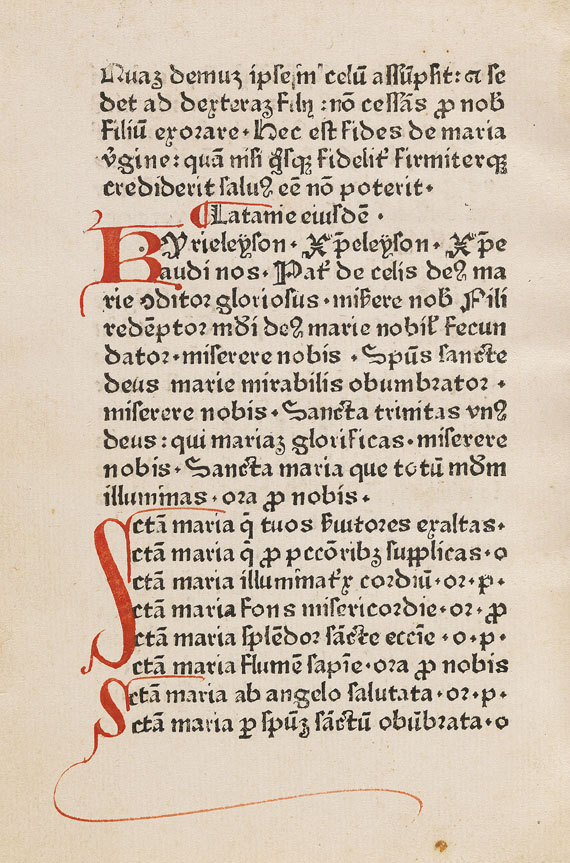 Nuaꝫ demuꝫ ipse in celū assūpsit: ⁊ se
det ad dexteraꝫ filij : nō cessās ꝓ nob
filiū exorare · Hec est fides de maria
v̓gine : quā nisi q̄sqꝫ fidelit̓ firmiterqꝫ
crediderit saluꝰ eē nō poterit ·
Latanie eiusdē ·
Kyrieleyson · Xp̄eleyson · Xp̄e
audi nos · Pat̓ de celis deꝰ ma
rie ꝯditor gloriosus · mis̓ere nob Fili
redēptor mūdi deꝰ marie nobil̓ fecun
dator · miserere nobis · Spūs sancte
deus marie mirabilis obumbrator ·
miserere nobis · Sancta trinitas vnꝰ
deus : qui mariaꝫ glorificas · miserere
nobis · Sancta maria que totū mūdm
illuminas · ora ꝓ nobis ·
Sctā maria q̄ tuos s̓uitores exaltas ·
Sctā maria q̄ ꝓ pccōribꝫ supplicas · o
Sctā maria illuminat̓x cordiū · or · p ·
Sctā maria fons misericordie · or · ꝓ
Sctā maria splēdor sācte eccīe · o · p ·
Sctā maria flumē sapīe · ora ꝓ nobis
Sctā maria ab angelo salutata · or · p ·
Sctā maria ꝑ spūꝫ sāctū obūbrata · o